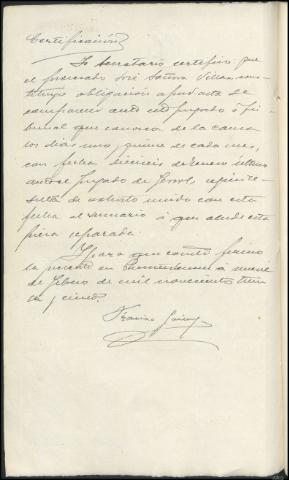 Certificación
Yo Secretario certifico: que
el procesado José
obligación apud acta de
comparecer ante este Juzgado ó Tri-
bunal que conozca de la causa
los días uno y quince de cada mes,
con fecha dieciseis de Enero último
ante el Juzgado de Ferrol, según re-
sulta de exhorto unido con esta
fecha al sumario á que alude esta
pieza separada.
Y para que conste firmo
la presente en a nueve
de Febrero de mil novecientos trein
ta y cinco.